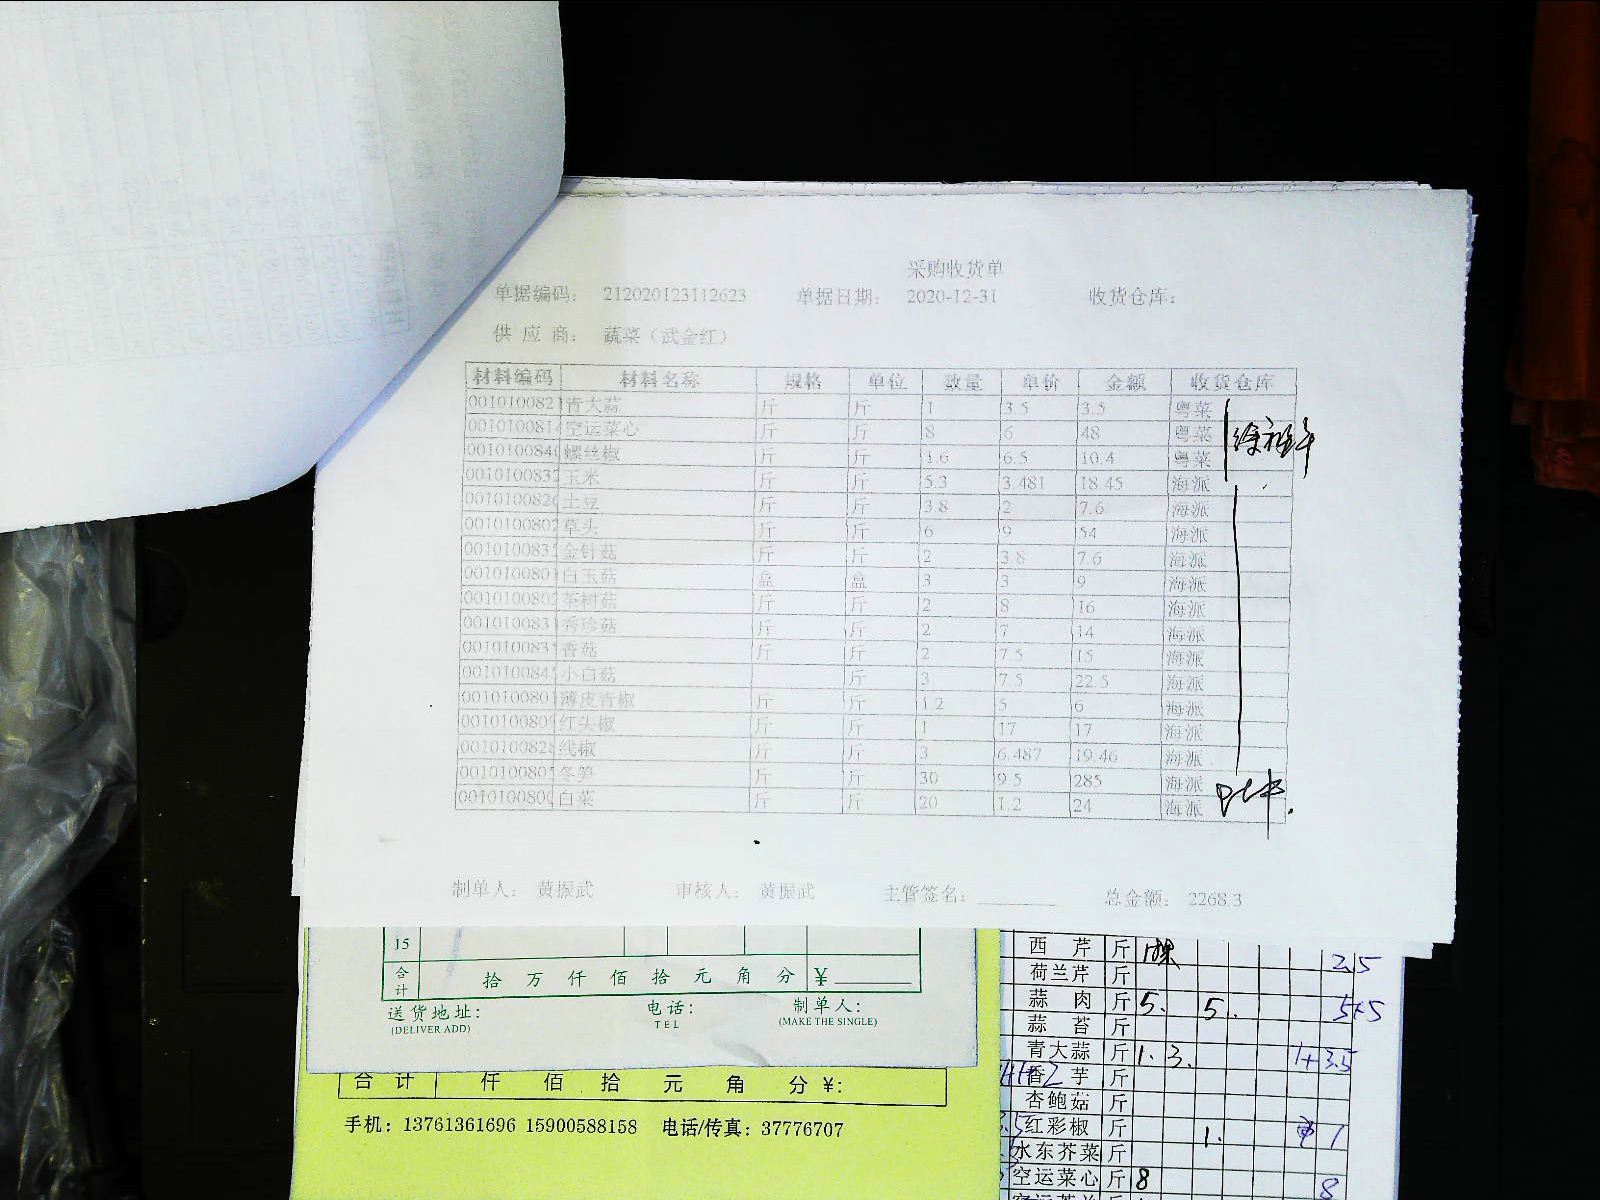 采购收货单
单据编码： 212020123112623 单据日期： 2020-12-31 收货仓库：
供 应 商： 蔬菜（武金红）
材料编码 材料名称 规格 单位 数量 单价 金额 收货仓库
001010082 青大蒜 斤 斤 1 3.5 3.5 粤菜
001010081 空运菜心 斤 斤 8 6 48 粤菜
001010084 螺丝椒 斤 斤 1.6 6.5 10.4 粤菜
001010083 玉米 斤 斤 5.3 3.481 18.45 海派
001010082 土豆 斤 斤 3.8 2 7.6 海派
001010080 草头 斤 斤 6 9 54 海派
001010083 金针菇 斤 斤 2 3.8 7.6 海派
001010080 白玉菇 盒 盒 3 3 9 海派
001010080 茶树菇 斤 斤 2 8 16 海派
001010083 秀珍菇 斤 斤 2 7 14 海派
001010083 香菇 斤 斤 2 7.5 15 海派
001010084 小白菇 斤 3 7.5 22.5 海派
001010080 薄皮青椒 斤 斤 1.2 5 6 海派
001010080 红尖椒 斤 斤 1 17 17 海派
001010082 线椒 斤 斤 3 6.487 19.46 海派
001010080 冬笋 斤 斤 30 9.5 285 海派
001010080 白菜 斤 斤 20 1.2 24 海派
制单人： 黄振武 审核人： 黄振武 主管签名： 总金额： 2268.3
15
合计 拾 万 仟 佰 拾 元 角 分 ¥
送货地址： 电话： 制单人：
(DELIVER ADD) TEL (MAKE THE SINGLE)
合 计 仟 佰 拾 元 角 分 ¥:
手机：13761361696 15900588158 电话/传真：37776707
西 芹 斤 2.5
荷兰芹 斤
蒜 肉 斤 5. 5. 5+5
蒜 苔 斤
青大蒜 斤 1. 3. 1+3.5
香 芋 斤
杏鲍菇 斤
红彩椒 斤 1. 1
水东芥菜 斤
空运菜心 斤 8 8